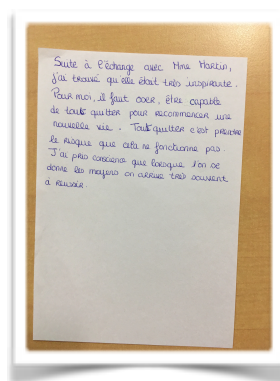 Suite à l'échange avec Mme Martin,
j'ai trouvé qu'elle était très inspirante.
Pour moi, il faut oser, être capable
de tout quitter pour recommencer une
nouvelle vie. Tout quitter c'est prendre
le risque que cela ne fonctionne pas.
J'ai pris conscience que lorsque l'on se
donne les moyens on arrive très souvent
à réussir.